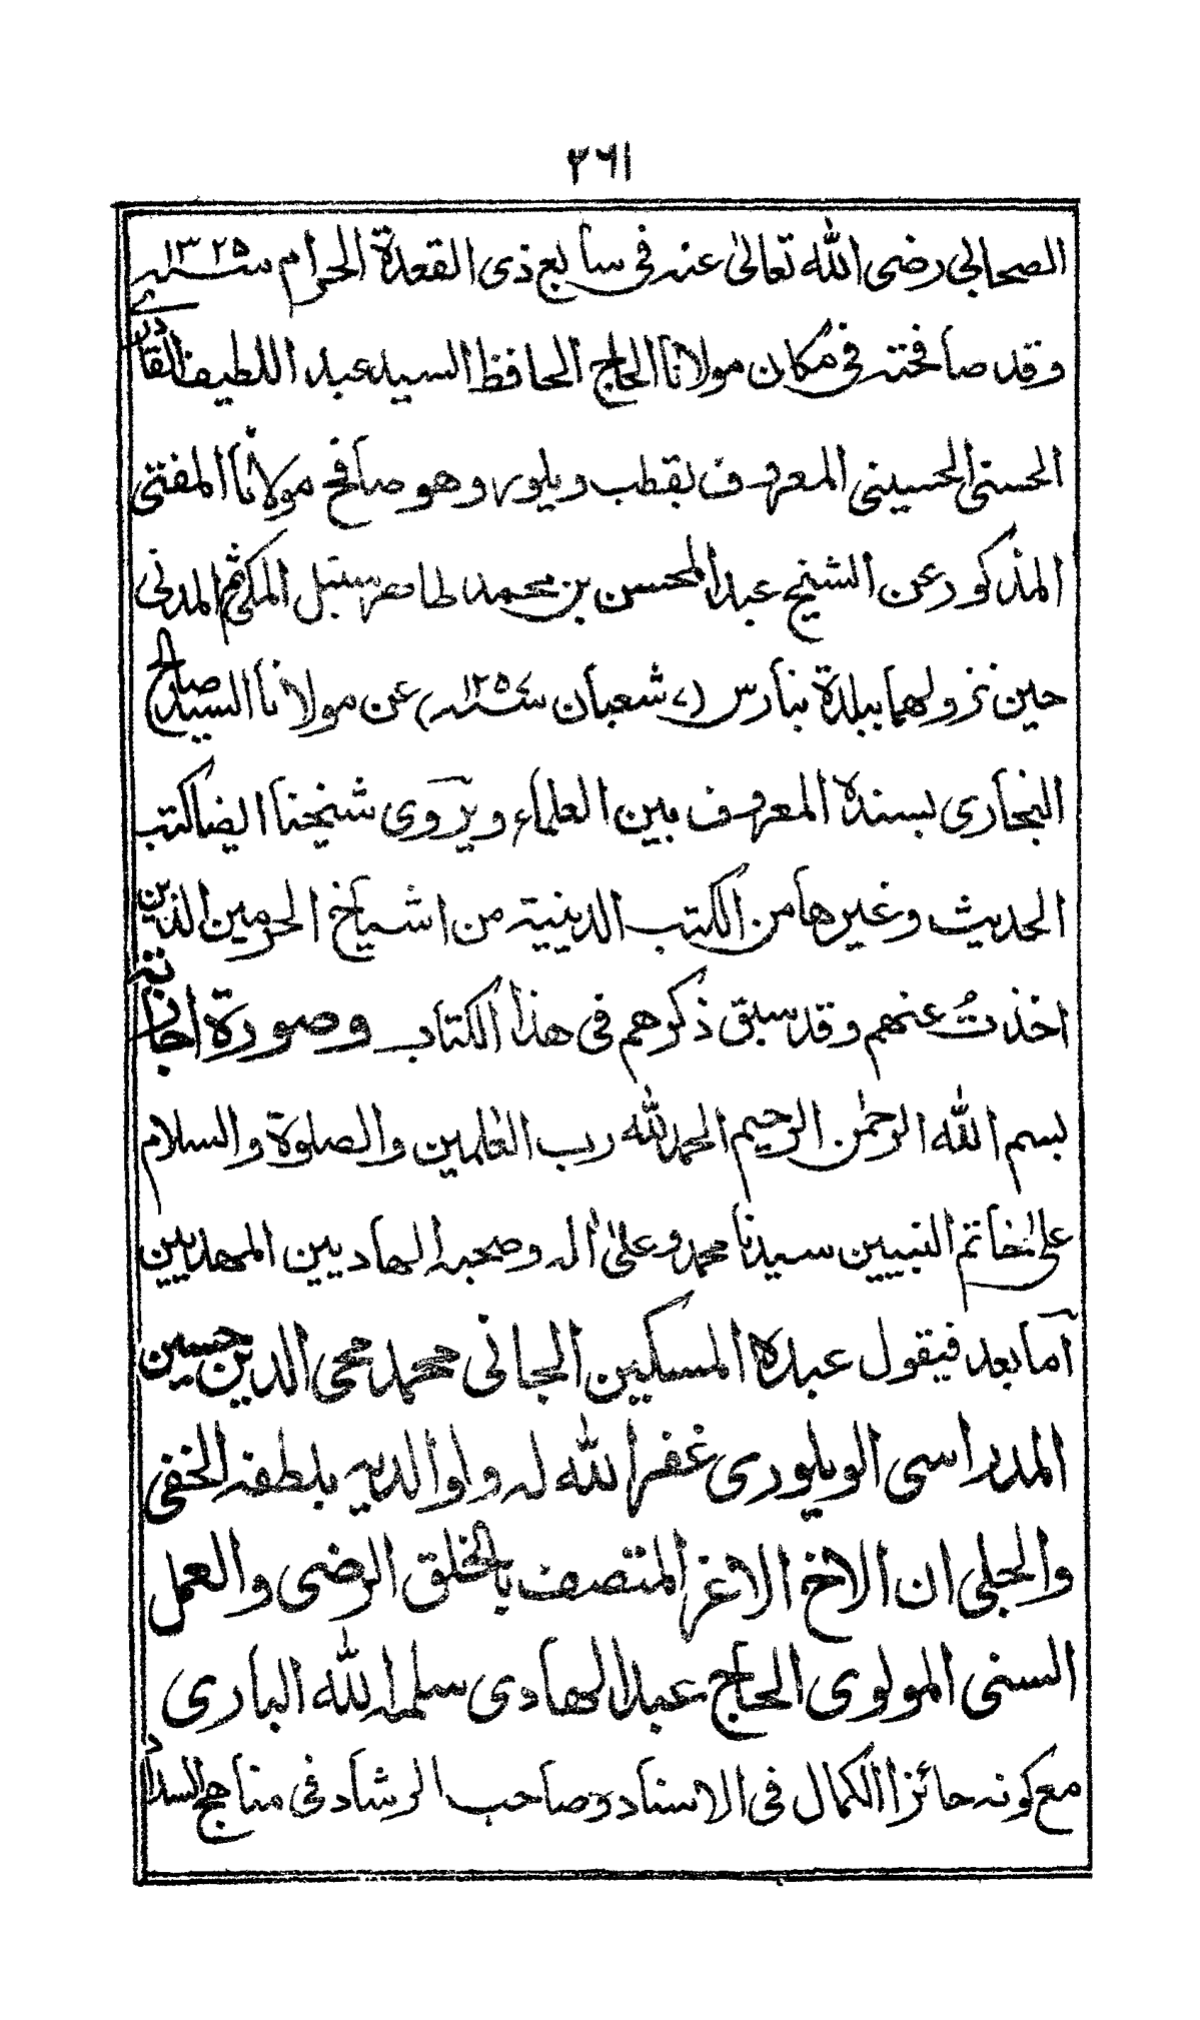 ٣٦١
الصحابي رضى الله تعالىٰ عنه فى سابع ذى القعدة الحرام سنه ١٣٢٥
وقد صافحته فى مكان مولانا الحاج الحافظ السيد عبد اللطيف القادرى
الحسنى الحسينى المعروف بقطب ويلور وهو صافح مولانا المفتى
المذكور عن الشيخ عبد المحسن بن محمد طاهر سنبل المكى ثم المدنى
حين نزولهما ببلدة بنارس (٧ شعبان سنه ١٢٥٧) عن مولانا السيد صالح
البخارى بسنده المعروف بين العلماء ويروى شيخنا ايضا كتب
الحديث وغيرها من الكتب الدينية من اشياخ الحرمين الذين
اخذتُ عنهم وقد سبق ذكرهم فى هذا الكتاب وصورة اجازته
بسم الله الرحمٰن الرحيم الحمد لله رب العٰلمين والصلوة والسلام
علىٰ خاتم النبيين سيدنا محمد وعلىٰ اٰله وصحبه الهاديين المهديين
آما بعد فيقول عبده المسكين الجانى محمد محى الدين حسين
المدراسى الويلورى غفر الله له ولوالديه بلطفه الخفى
والجلى ان الاخ الاغر المتصف بالخلق الرضى والعمل
السنى المولوى الحاج عبد الهادى سلمه الله البارى
مع كونه حائزا الكمال فى الاسناد وصاحب الرشاد فى مناهج السداد